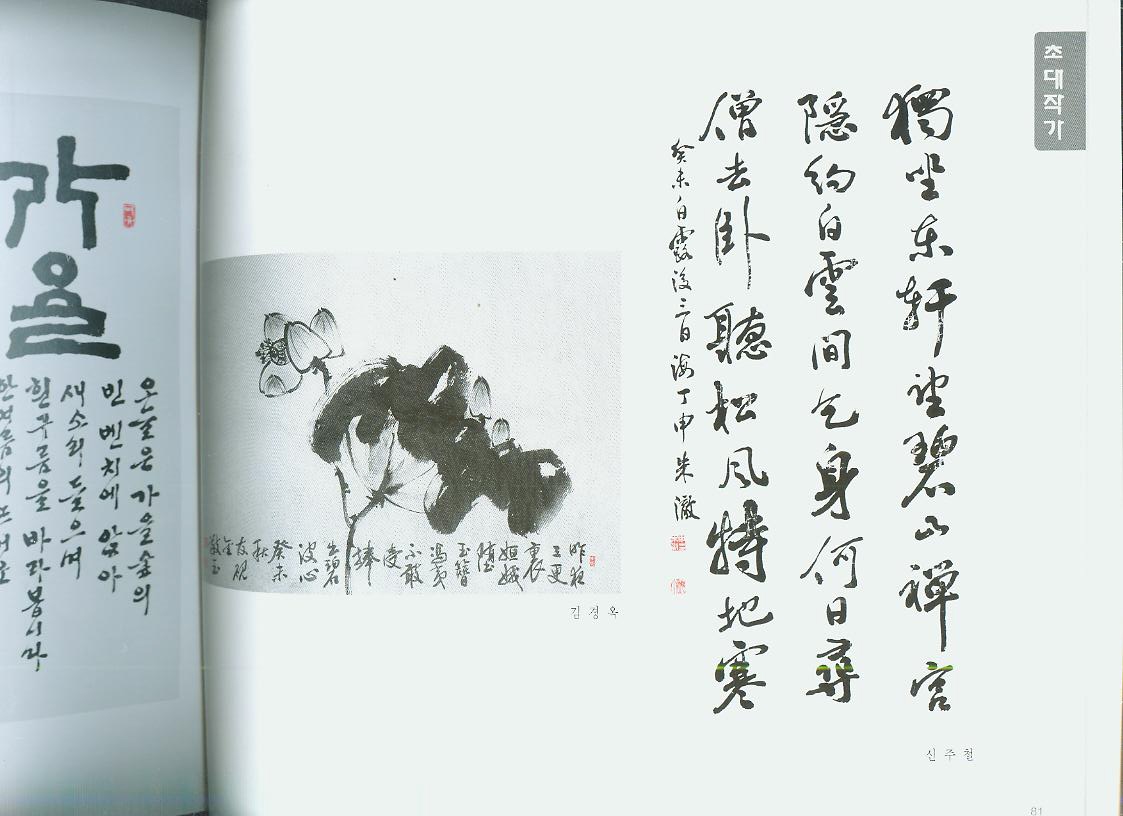 초대작가
獨坐東軒望碧山禪宮
隱約白雲間乞身何日尋
僧去臥聽松風特地寒
癸未白露後三日海丁申朱澈
신주철
昨夜
三更
裏
姮娥
墮
玉簪
馮夷
不敢
受
捧
出碧
波心
癸未
秋
友硯
김경옥
81
가을
오늘은 가을숲의
빈 벤치에 앉아
새소리 들으며
흰구름을 바라봅니다